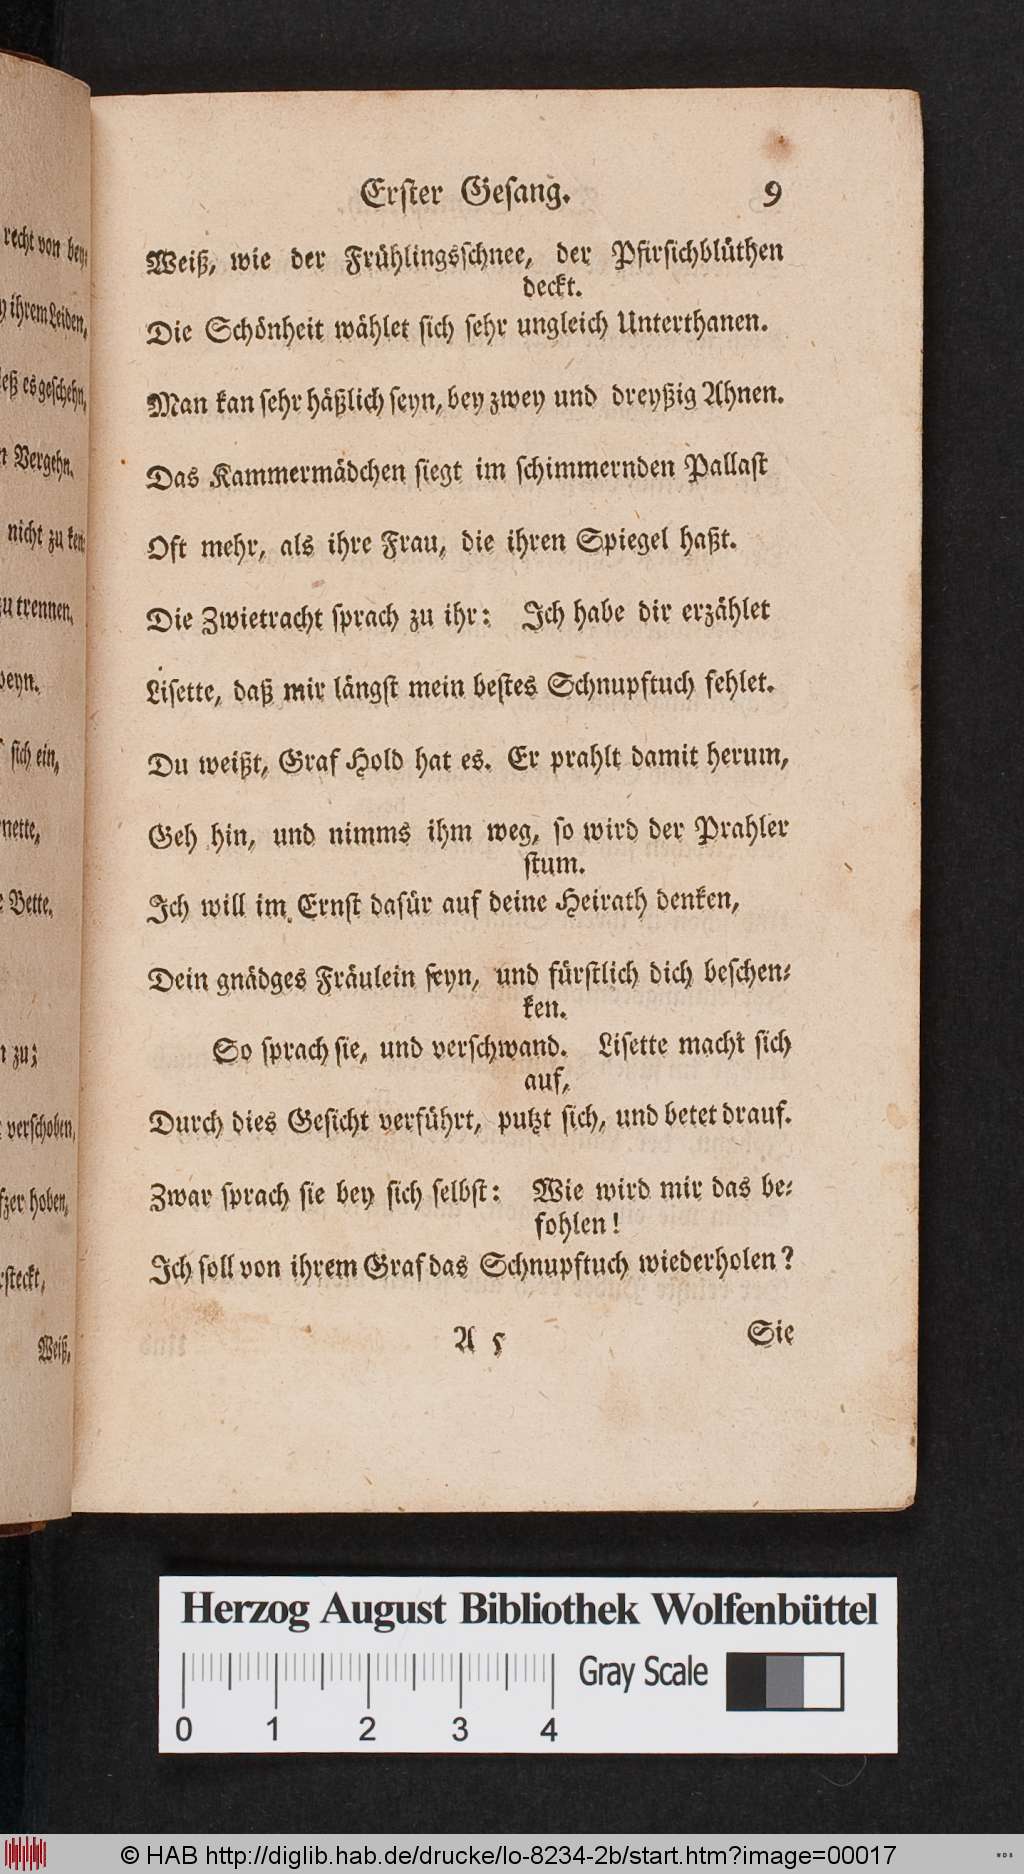 recht von bey-
y ihrem Leiden,
ieß es geschehn,
n Vergehn.
nicht zu ken-
zu trennen.
weyn.
sich ein,
nette,
e Bette.
n zu;
verschoben,
fzer hoben,
rsteckt,
Weiß,
Erster Gesang. 9
Weiß, wie der Frühlingsschnee, der Pfirsichblüthen
deckt.
Die Schönheit wählet sich sehr ungleich Unterthanen.
Man kan sehr häßlich seyn, bey zwey und dreyßig Ahnen.
Das Kammermädchen siegt im schimmernden Pallast
Oft mehr, als ihre Frau, die ihren Spiegel haßt.
Die Zwietracht sprach zu ihr: Ich habe dir erzählet
Lisette, daß mir längst mein bestes Schnupftuch fehlet.
Du weißt, Graf Hold hat es. Er prahlt damit herum,
Geh hin, und nimms ihm weg, so wird der Prahler
stum.
Ich will im Ernst dafür auf deine Heirath denken,
Dein gnädges Fräulein seyn, und fürstlich dich beschen-
ken.
So sprach sie, und verschwand. Lisette macht sich
auf,
Durch dies Gesicht verführt, putzt sich, und betet drauf.
Zwar sprach sie bey sich selbst: Wie wird mir das be-
fohlen!
Ich soll von ihrem Graf das Schnupftuch wiederholen?
A 5 Sie
Herzog August Bibliothek Wolfenbüttel
Gray Scale
0 1 2 3 4
© HAB http://diglib.hab.de/drucke/lo-8234-2b/start.htm?image=00017